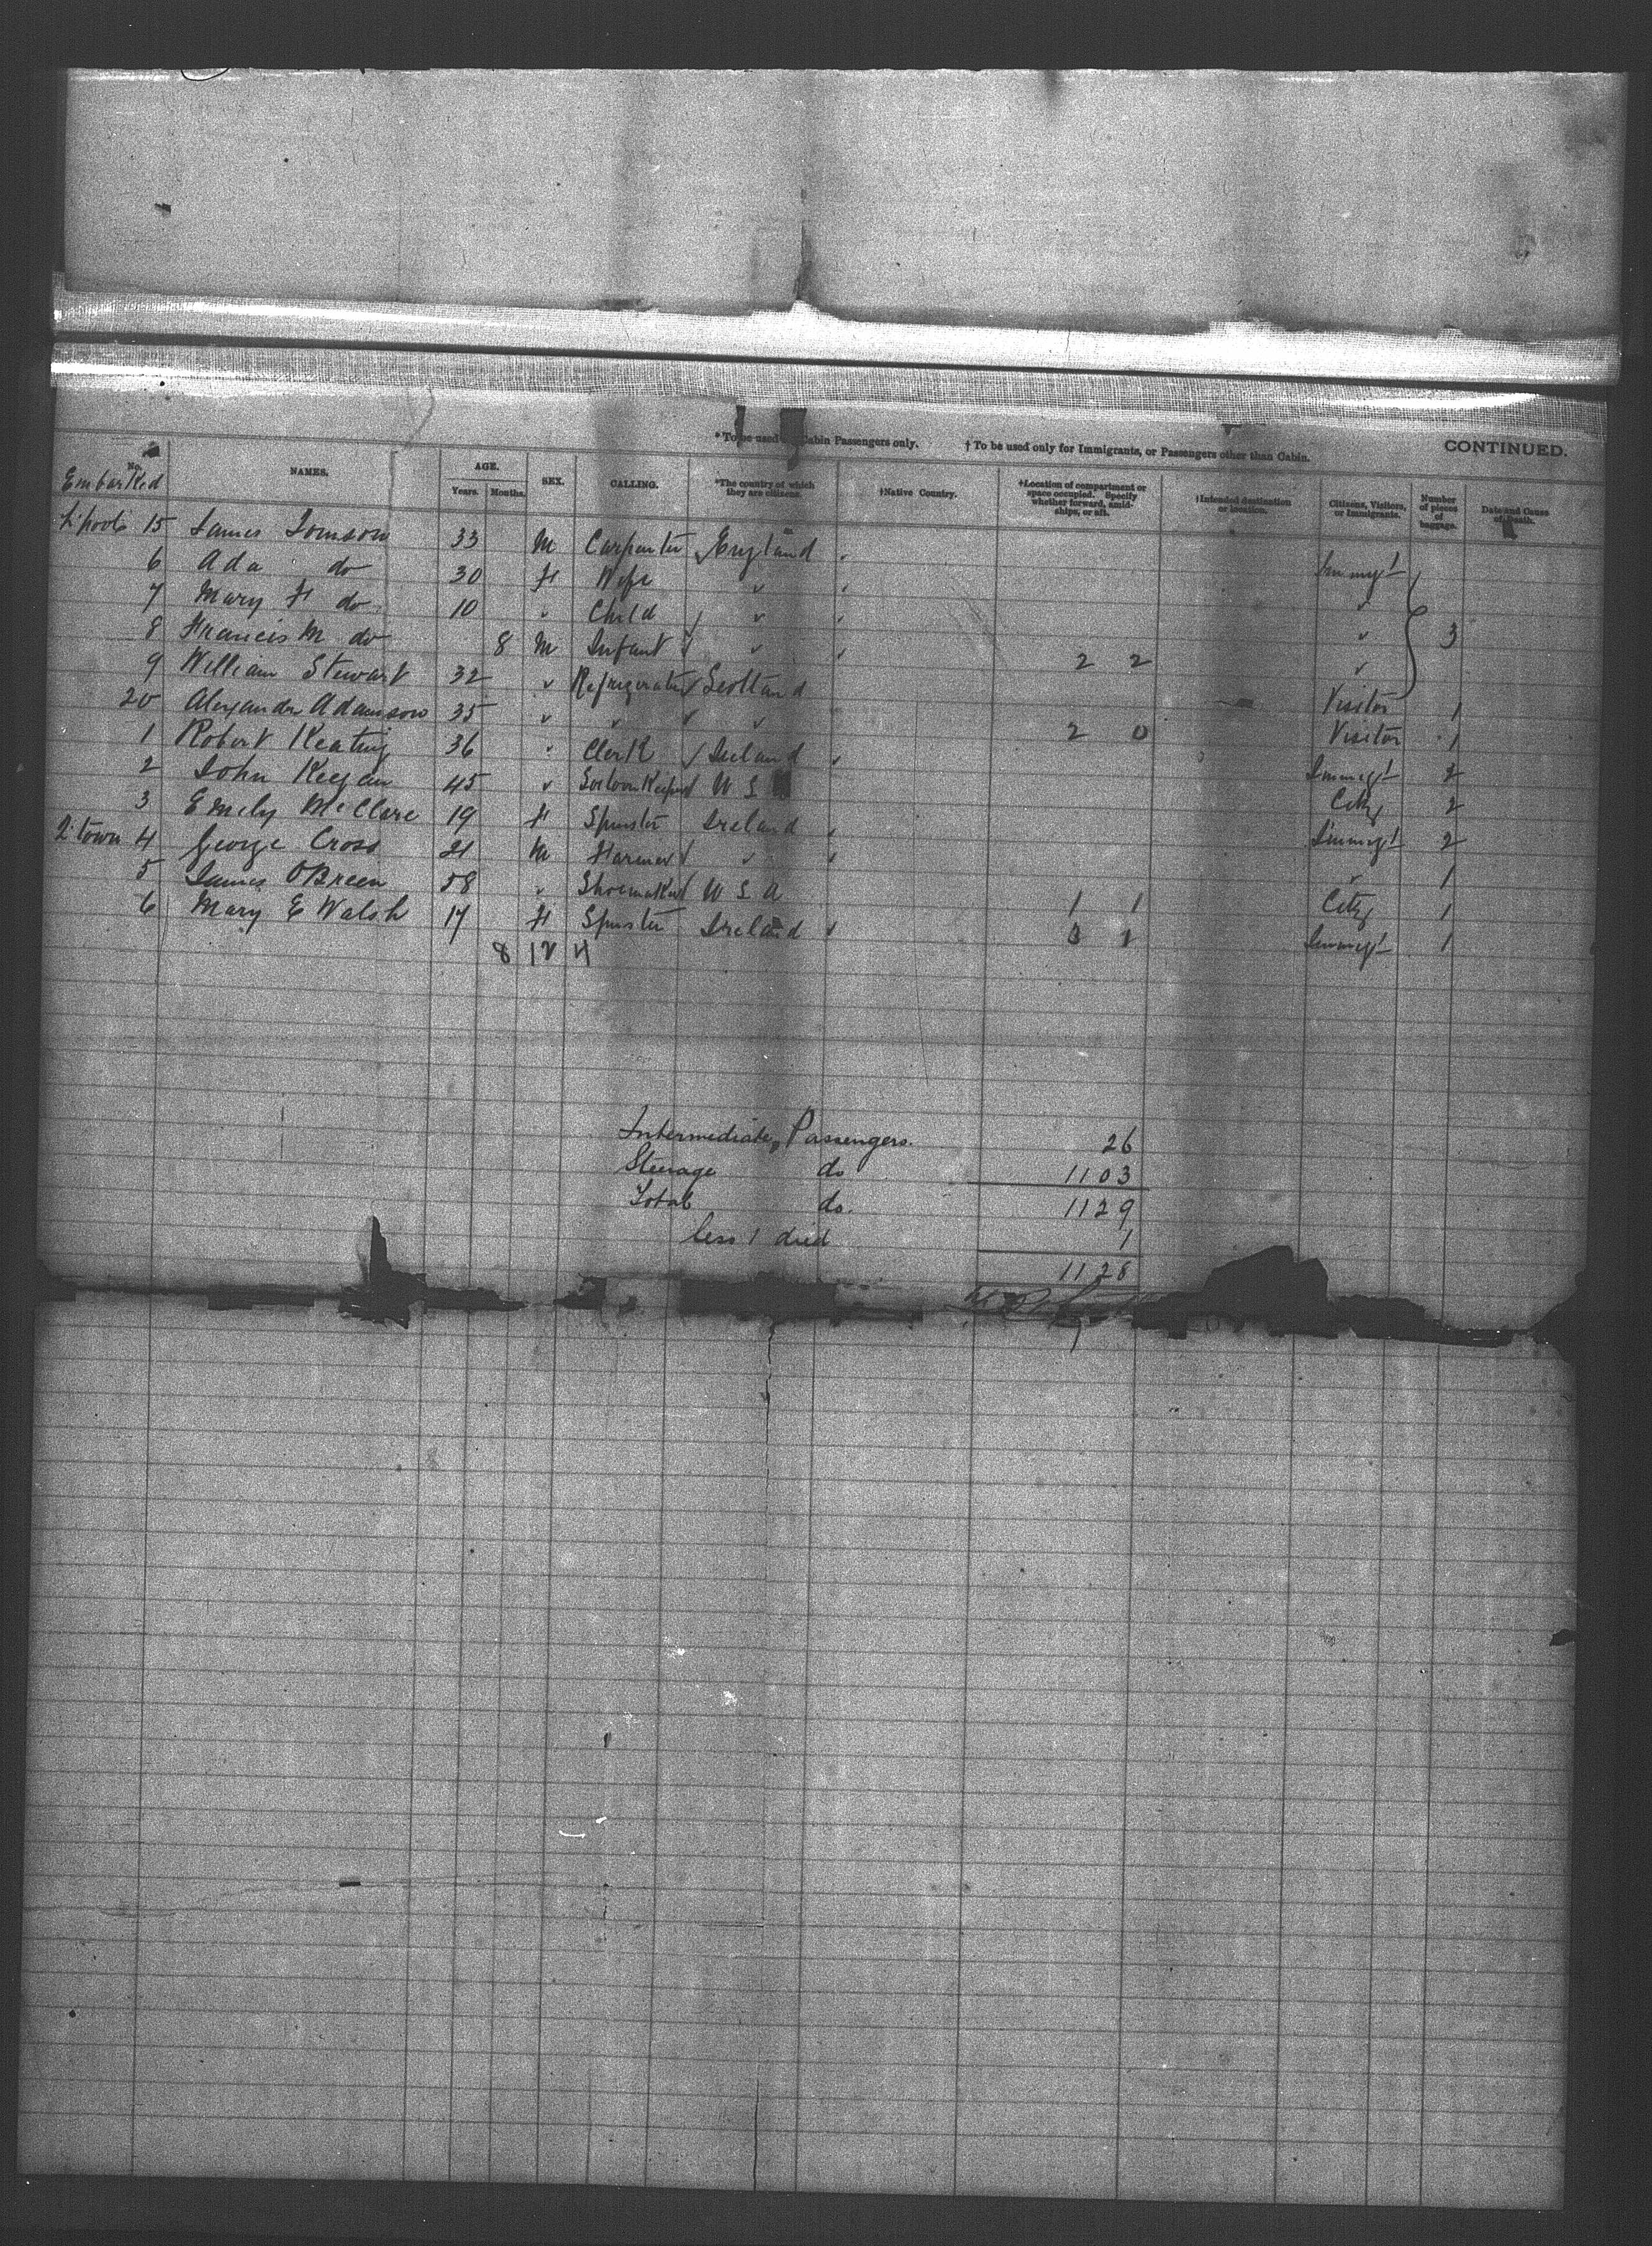 *To be used Cabin Passengers only. † To be used only for Immigrants, or Passengers other than Cabin. CONTINUED.
No. NAMES. AGE. Years. Months. SEX. CALLING. *The country of which they are citizens. †Native Country. †Location of compartment or space occupied. Specify whether forward, amidships, or aft. †Intended destination or location. Citizens, Visitors, or Immigrants. Number of pieces of baggage. Date and Cause of Death.
Embarked
L'pool 15 James Tomson 33 M Carpenter England Immgt
6 Ada do 30 F Wife " "
7 Mary F do 10 " Child " " 3
8 Francis M do 8 M Infant " 2 2 "
9 William Stewart 32 " Refrigerator Scotland Visitor 1
20 Alexander Adamson 35 " " " 2 0 Visitor 1
1 Robert Keating 36 " Clerk Ireland Immigt 2
2 John Keegan 45 " Saloon Keeper U S City 2
3 Emily McClare 19 F Spinster Ireland Immigt 2
Q'town 4 George Cross 21 M Farmer " " 1
5 James O'Breen 58 " Shoemaker U S A 1 1 City 1
6 Mary E Walsh 17 F Spinster Ireland 3 1 Immigt 1
8 12 4
Intermediate Passengers. 26
Steerage do 1103
Total do. 1129
less 1 died 1
1128